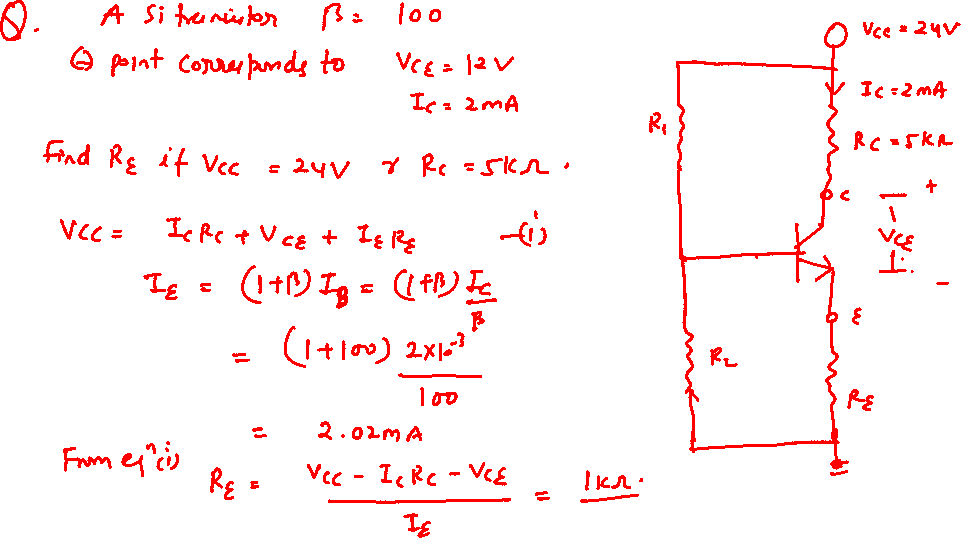 Q. A Si transistor β = 100
Q point corresponds to VCE = 12V
IC = 2mA
Find RE if VCC = 24V & RC = 5KΩ.
VCC = IC RC + VCE + IE RE —(i)
IE = (1+β) IB = (1+β) IC/β
= (1+100) 2×10⁻³/100
= 2.02mA
From eqⁿ(i)
RE = (VCC - IC RC - VCE)/IE = 1KΩ.
VCC = 24V
IC = 2mA
R1
RC = 5KΩ
C
+
VCE
-
E
R2
RE